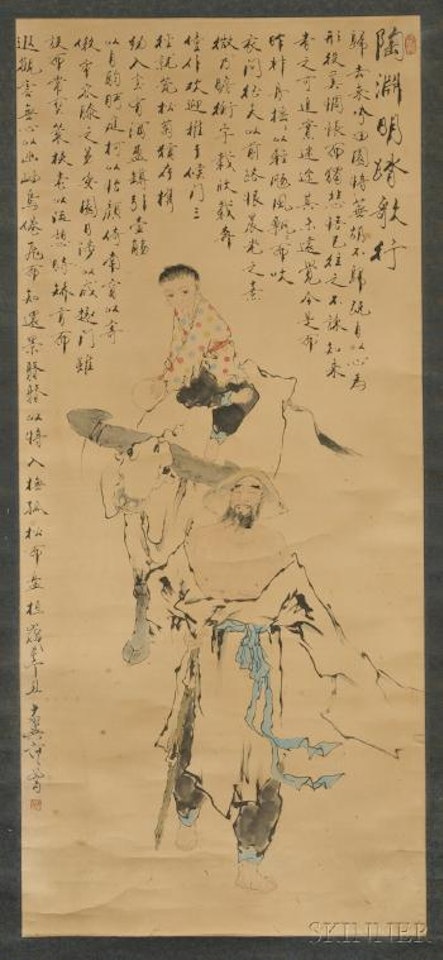 陶淵明踏歌行
歸去来兮田園將蕪胡不歸既自以心為
形役奚惆悵而獨悲悟已往之不諫知来
者之可追實迷途其未遠覺今是而
昨非舟搖以輕颺風飄而吹
衣問征夫以前路恨晨光之熹
微乃瞻衡宇載欣載奔
僮僕歡迎稚子候門三
徑就荒松菊猶存攜
幼入室有酒盈罇引壺觴
以自酌眄庭柯以怡顏倚南窗以寄
傲審容膝之易安園日涉以成趣門雖
設而常關策扶老以流憩時矯首而
遐觀雲無心以出岫鳥倦飛而知還景翳翳以將入撫孤松而盤桓 歲辛丑 十翼范曾
SKINNER